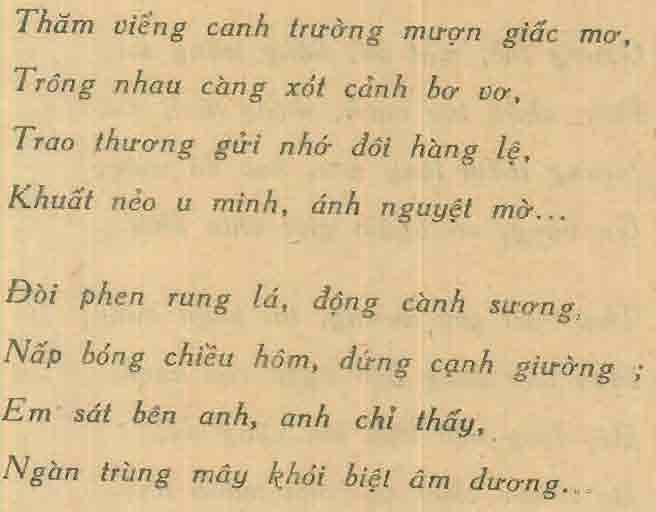 Thăm viếng canh trường mượn giấc mơ,
Trông nhau càng xót cảnh bơ vơ,
Trao thương gửi nhớ đôi hàng lệ,
Khuất nẻo u minh, ánh nguyệt mờ...
Đòi phen rung lá, động cành sương,
Nấp bóng chiều hôm, đứng cạnh giường ;
Em sát bên anh, anh chỉ thấy,
Ngàn trùng mây khói biệt âm dương...